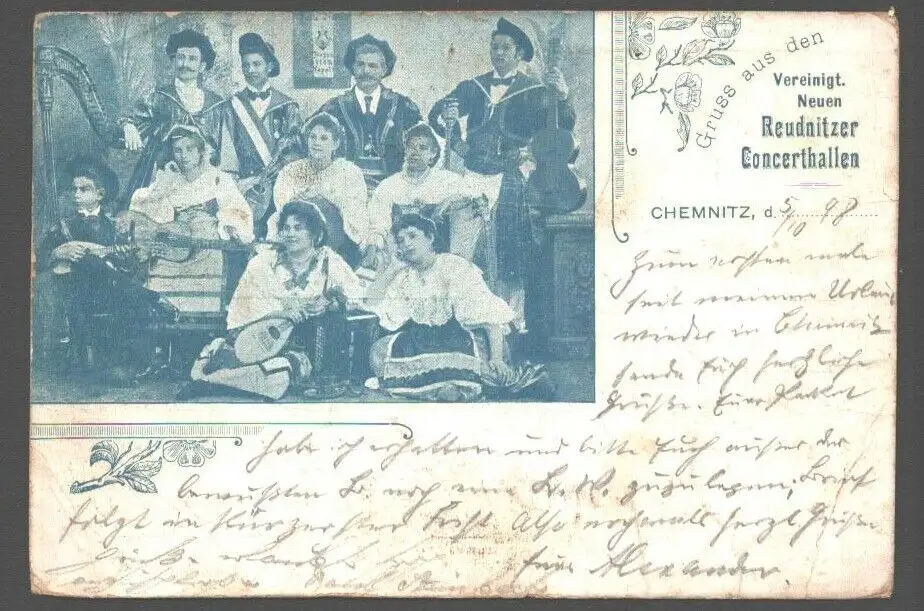 Gruss aus den
Vereinigt.
Neuen
Reudnitzer
Concerthallen
CHEMNITZ, d. 5/10 98
Zum ersten male
seit meinem Urlaub
wieder in Chemnitz
sende Euch herzliche
Grüße. Euer Packet
habe ich erhalten und bitte Euch außer der
bewußten noch eine zuzulegen, Brief
folgt in kürzester Frist Also nochmals herzl Grüße
Euer Alexander